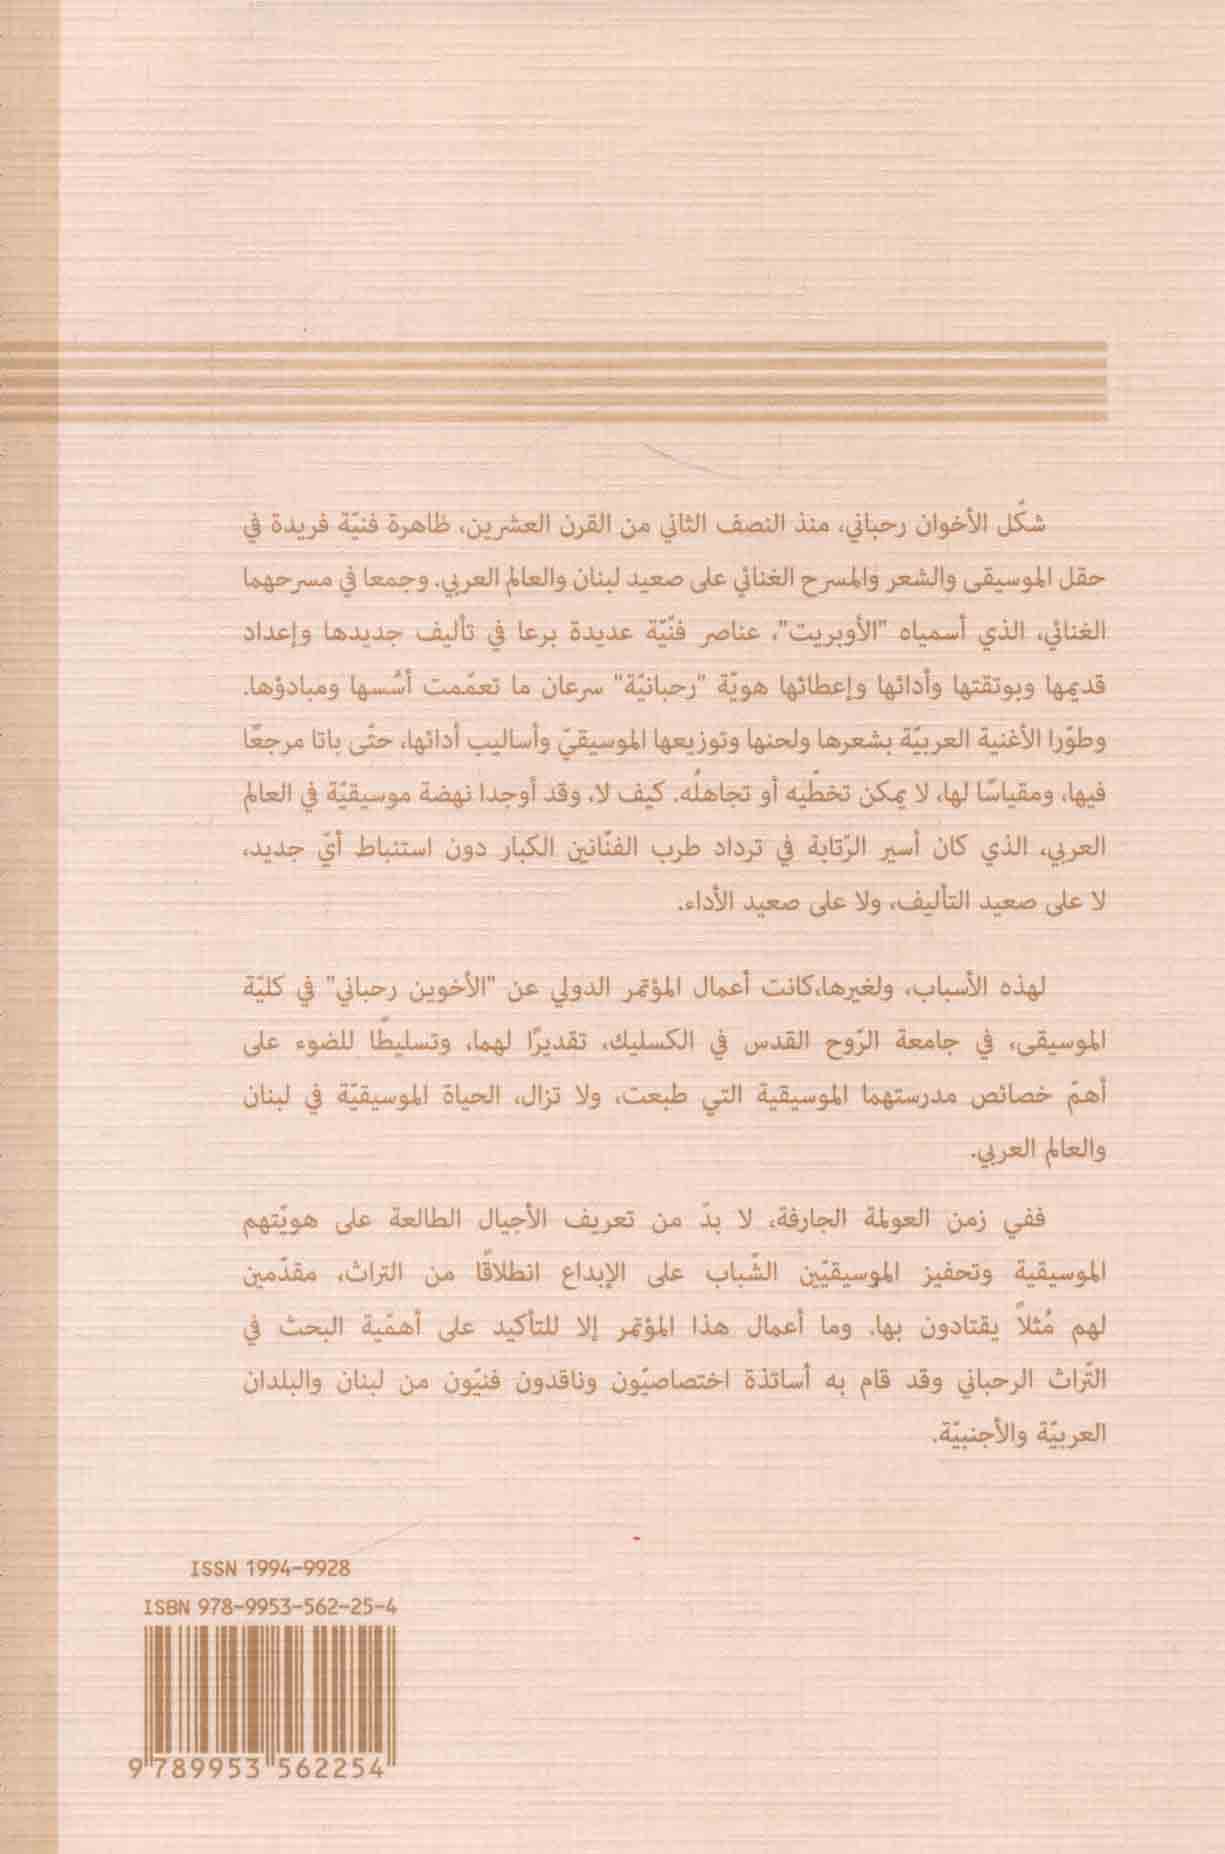 شكّل الأخوان رحباني، منذ النصف الثاني من القرن العشرين، ظاهرة فنيّة فريدة في
حقل الموسيقى والشعر والمسرح الغنائي على صعيد لبنان والعالم العربي. وجمعا في مسرحهما
الغنائي، الذي أسمياه "الأوبريت"، عناصر فنّيّة عديدة برعا في تأليف جديدها وإعداد
قديمها وبوتقتها وأدائها وإعطائها هويّة "رحبانيّة" سرعان ما تعمّمت أسُسها ومبادؤها.
وطوّرا الأغنية العربيّة بشعرها ولحنها وتوزيعها الموسيقيّ وأساليب أدائها، حتّى باتا مرجعًا
فيها، ومقياسًا لها، لا يمكن تخطّيه أو تجاهلُه. كيف لا، وقد أوجدا نهضة موسيقيّة في العالم
العربي، الذي كان أسير الرّتابة في ترداد طرب الفنّانين الكبار دون استنباط أيّ جديد،
لا على صعيد التأليف، ولا على صعيد الأداء.
لهذه الأسباب، ولغيرها،كانت أعمال المؤتمر الدولي عن "الأخوين رحباني" في كليّة
الموسيقى، في جامعة الرّوح القدس في الكسليك، تقديرًا لهما، وتسليطًا للضوء على
أهمّ خصائص مدرستهما الموسيقية التي طبعت، ولا تزال، الحياة الموسيقيّة في لبنان
والعالم العربي.
ففي زمن العولمة الجارفة، لا بدّ من تعريف الأجيال الطالعة على هويّتهم
الموسيقية وتحفيز الموسيقيّين الشّباب على الإبداع انطلاقًا من التراث، مقدّمين
لهم مُثلاً يقتادون بها. وما أعمال هذا المؤتمر إلا للتأكيد على أهمّية البحث في
التّراث الرحباني وقد قام به أساتذة اختصاصيّون وناقدون فنيّون من لبنان والبلدان
العربيّة والأجنبيّة.
ISSN 1994-9928
ISBN 978-9953-562-25-4
9 789953 562254